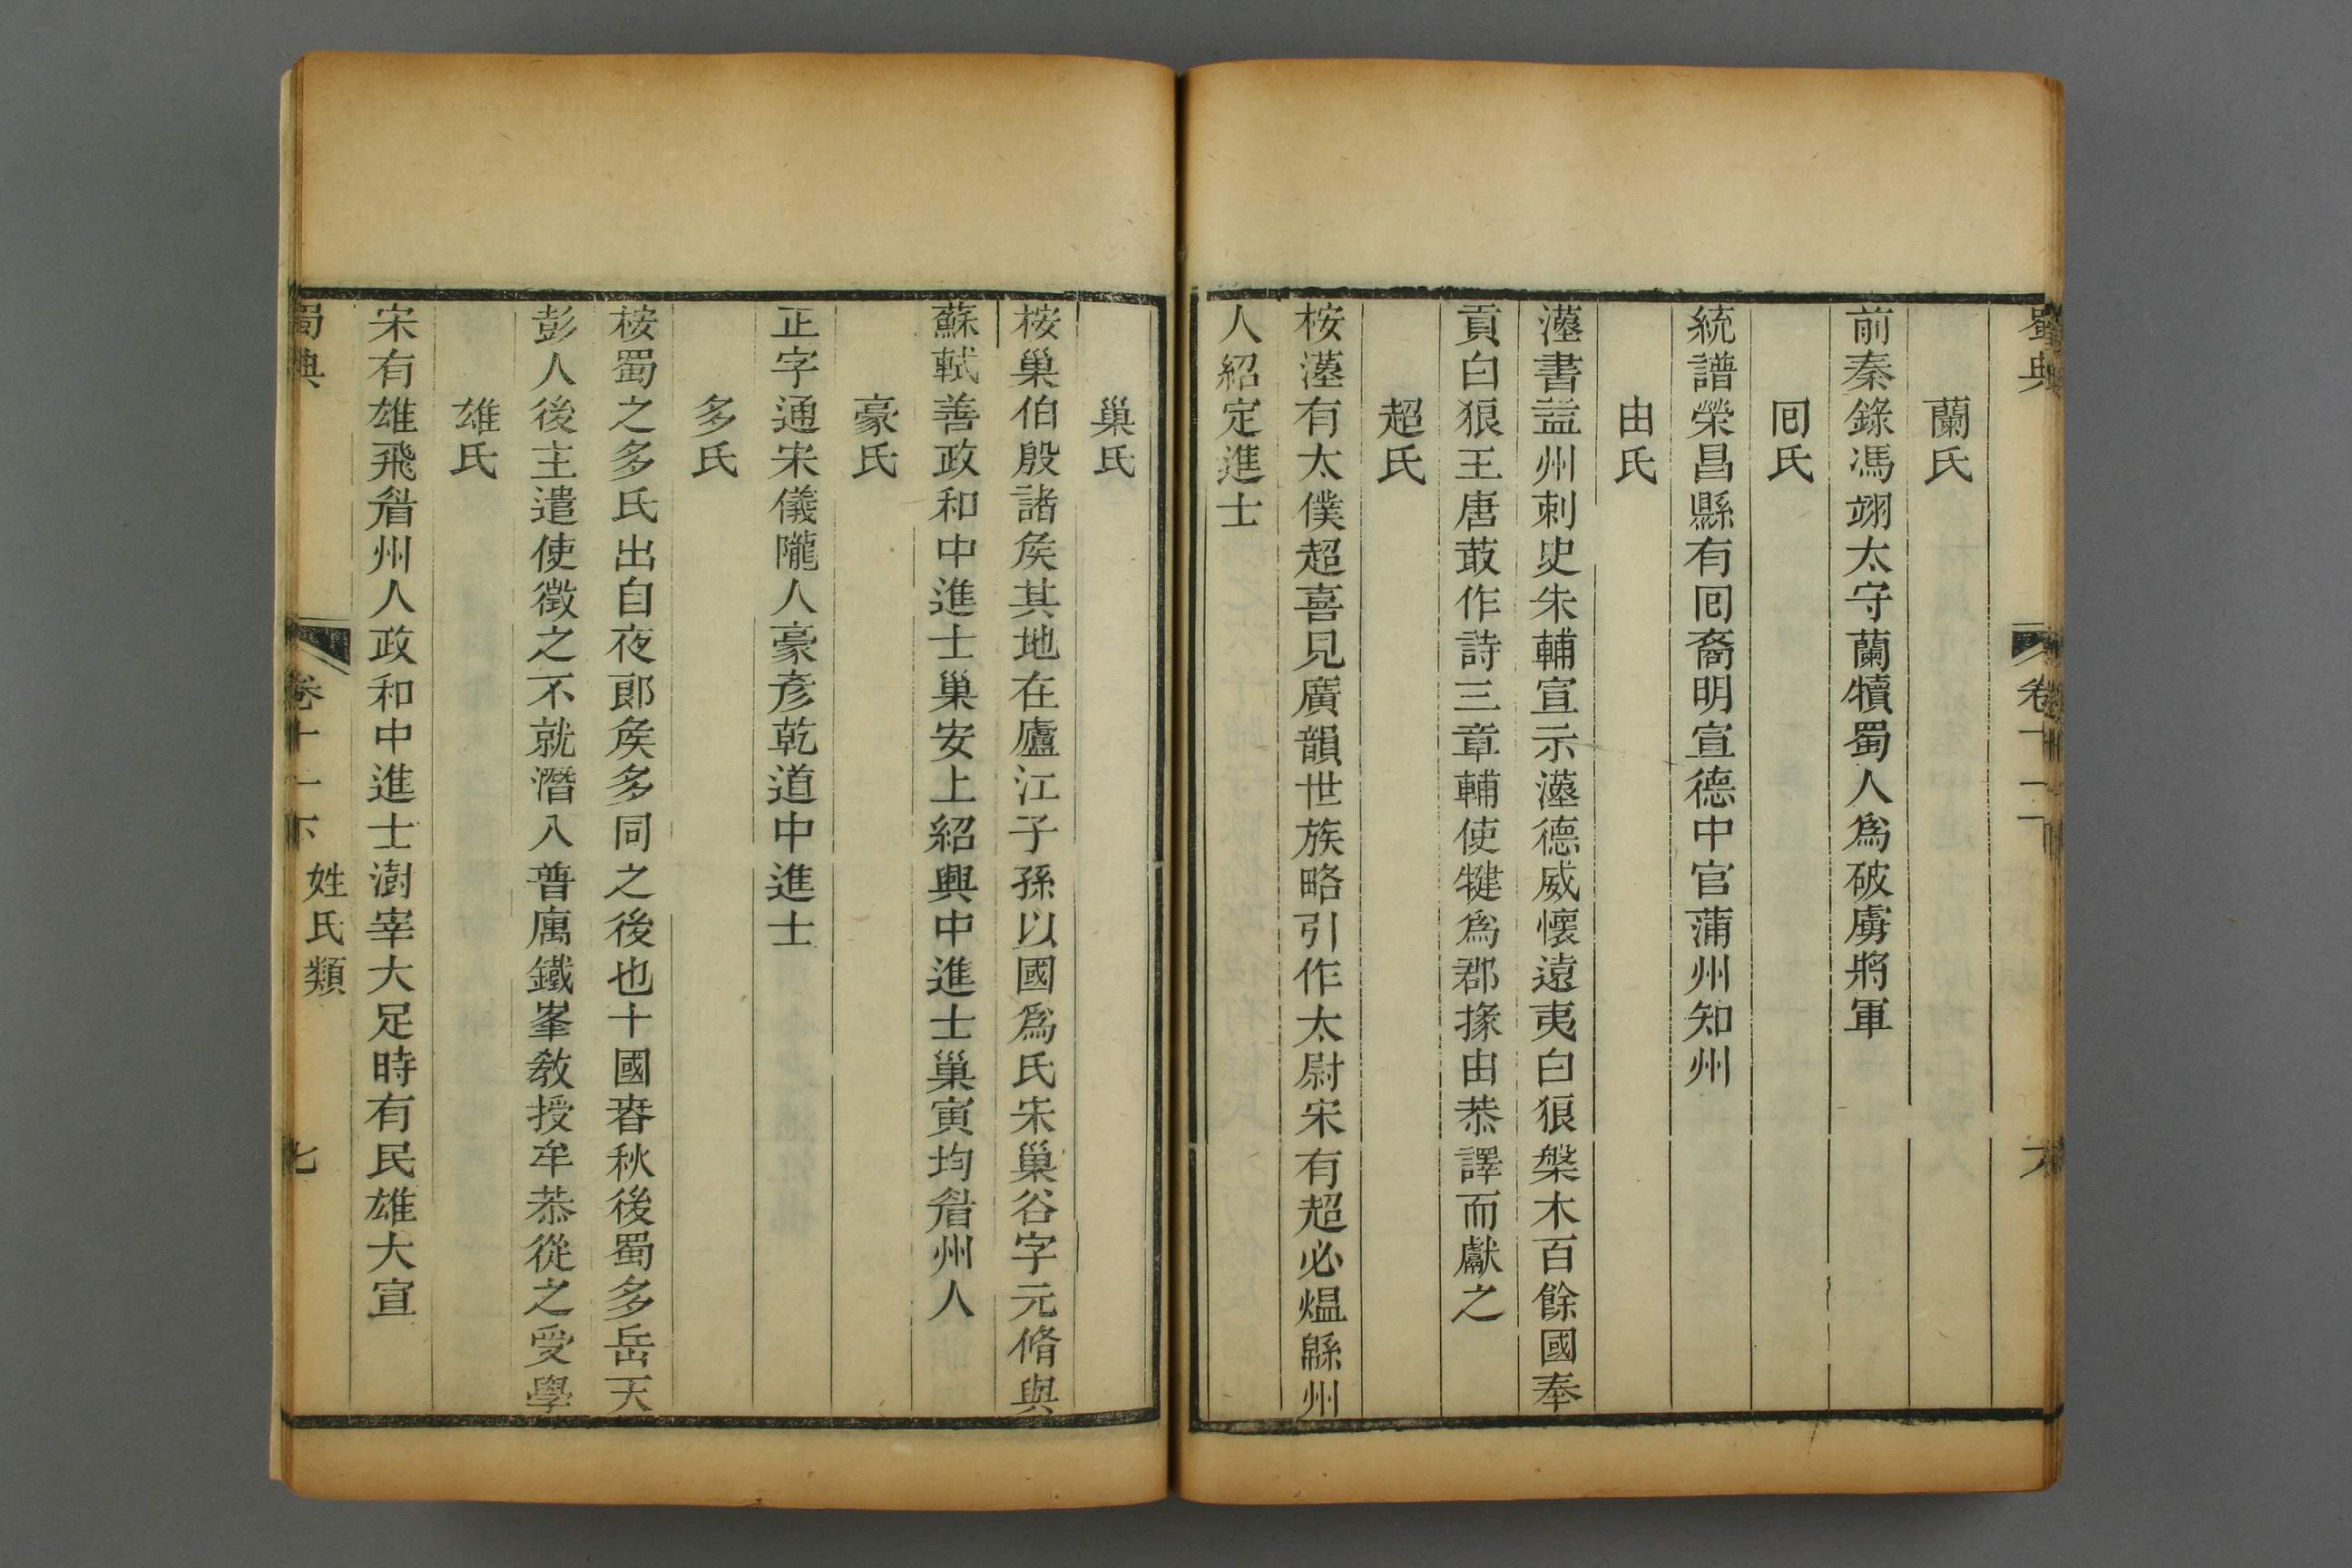 蜀典
卷十二
蘭氏
前秦錄馮翊太守蘭犢蜀人爲破虜將軍
囘氏
統譜榮昌縣有囘裔明宣德中官蒲州知州
由氏
漢書益州刺史朱輔宣示漢德威懷遠夷白狼槃木百餘國奉
貢白狼王唐菆作詩三章輔使犍爲郡掾由恭譯而獻之
超氏
桉漢有太僕超喜見廣韻世族略引作太尉宋有超必熅緜州
人紹定進士
巢氏
桉巢伯殷諸矦其地在廬江子孫以國爲氏宋巢谷字元脩與
蘇軾善政和中進士巢安上紹興中進士巢寅均眉州人
豪氏
正字通宋儀隴人豪彥乾道中進士
多氏
桉蜀之多氏出自夜郎矦多同之後也十國春秋後蜀多岳天
彭人後主遣使徵之不就潛入普寓鐵峯敎授牟恭從之受學
雄氏
宋有雄飛眉州人政和中進士澍宰大足時有民雄大宣
蜀典
卷十一下
姓氏類
七